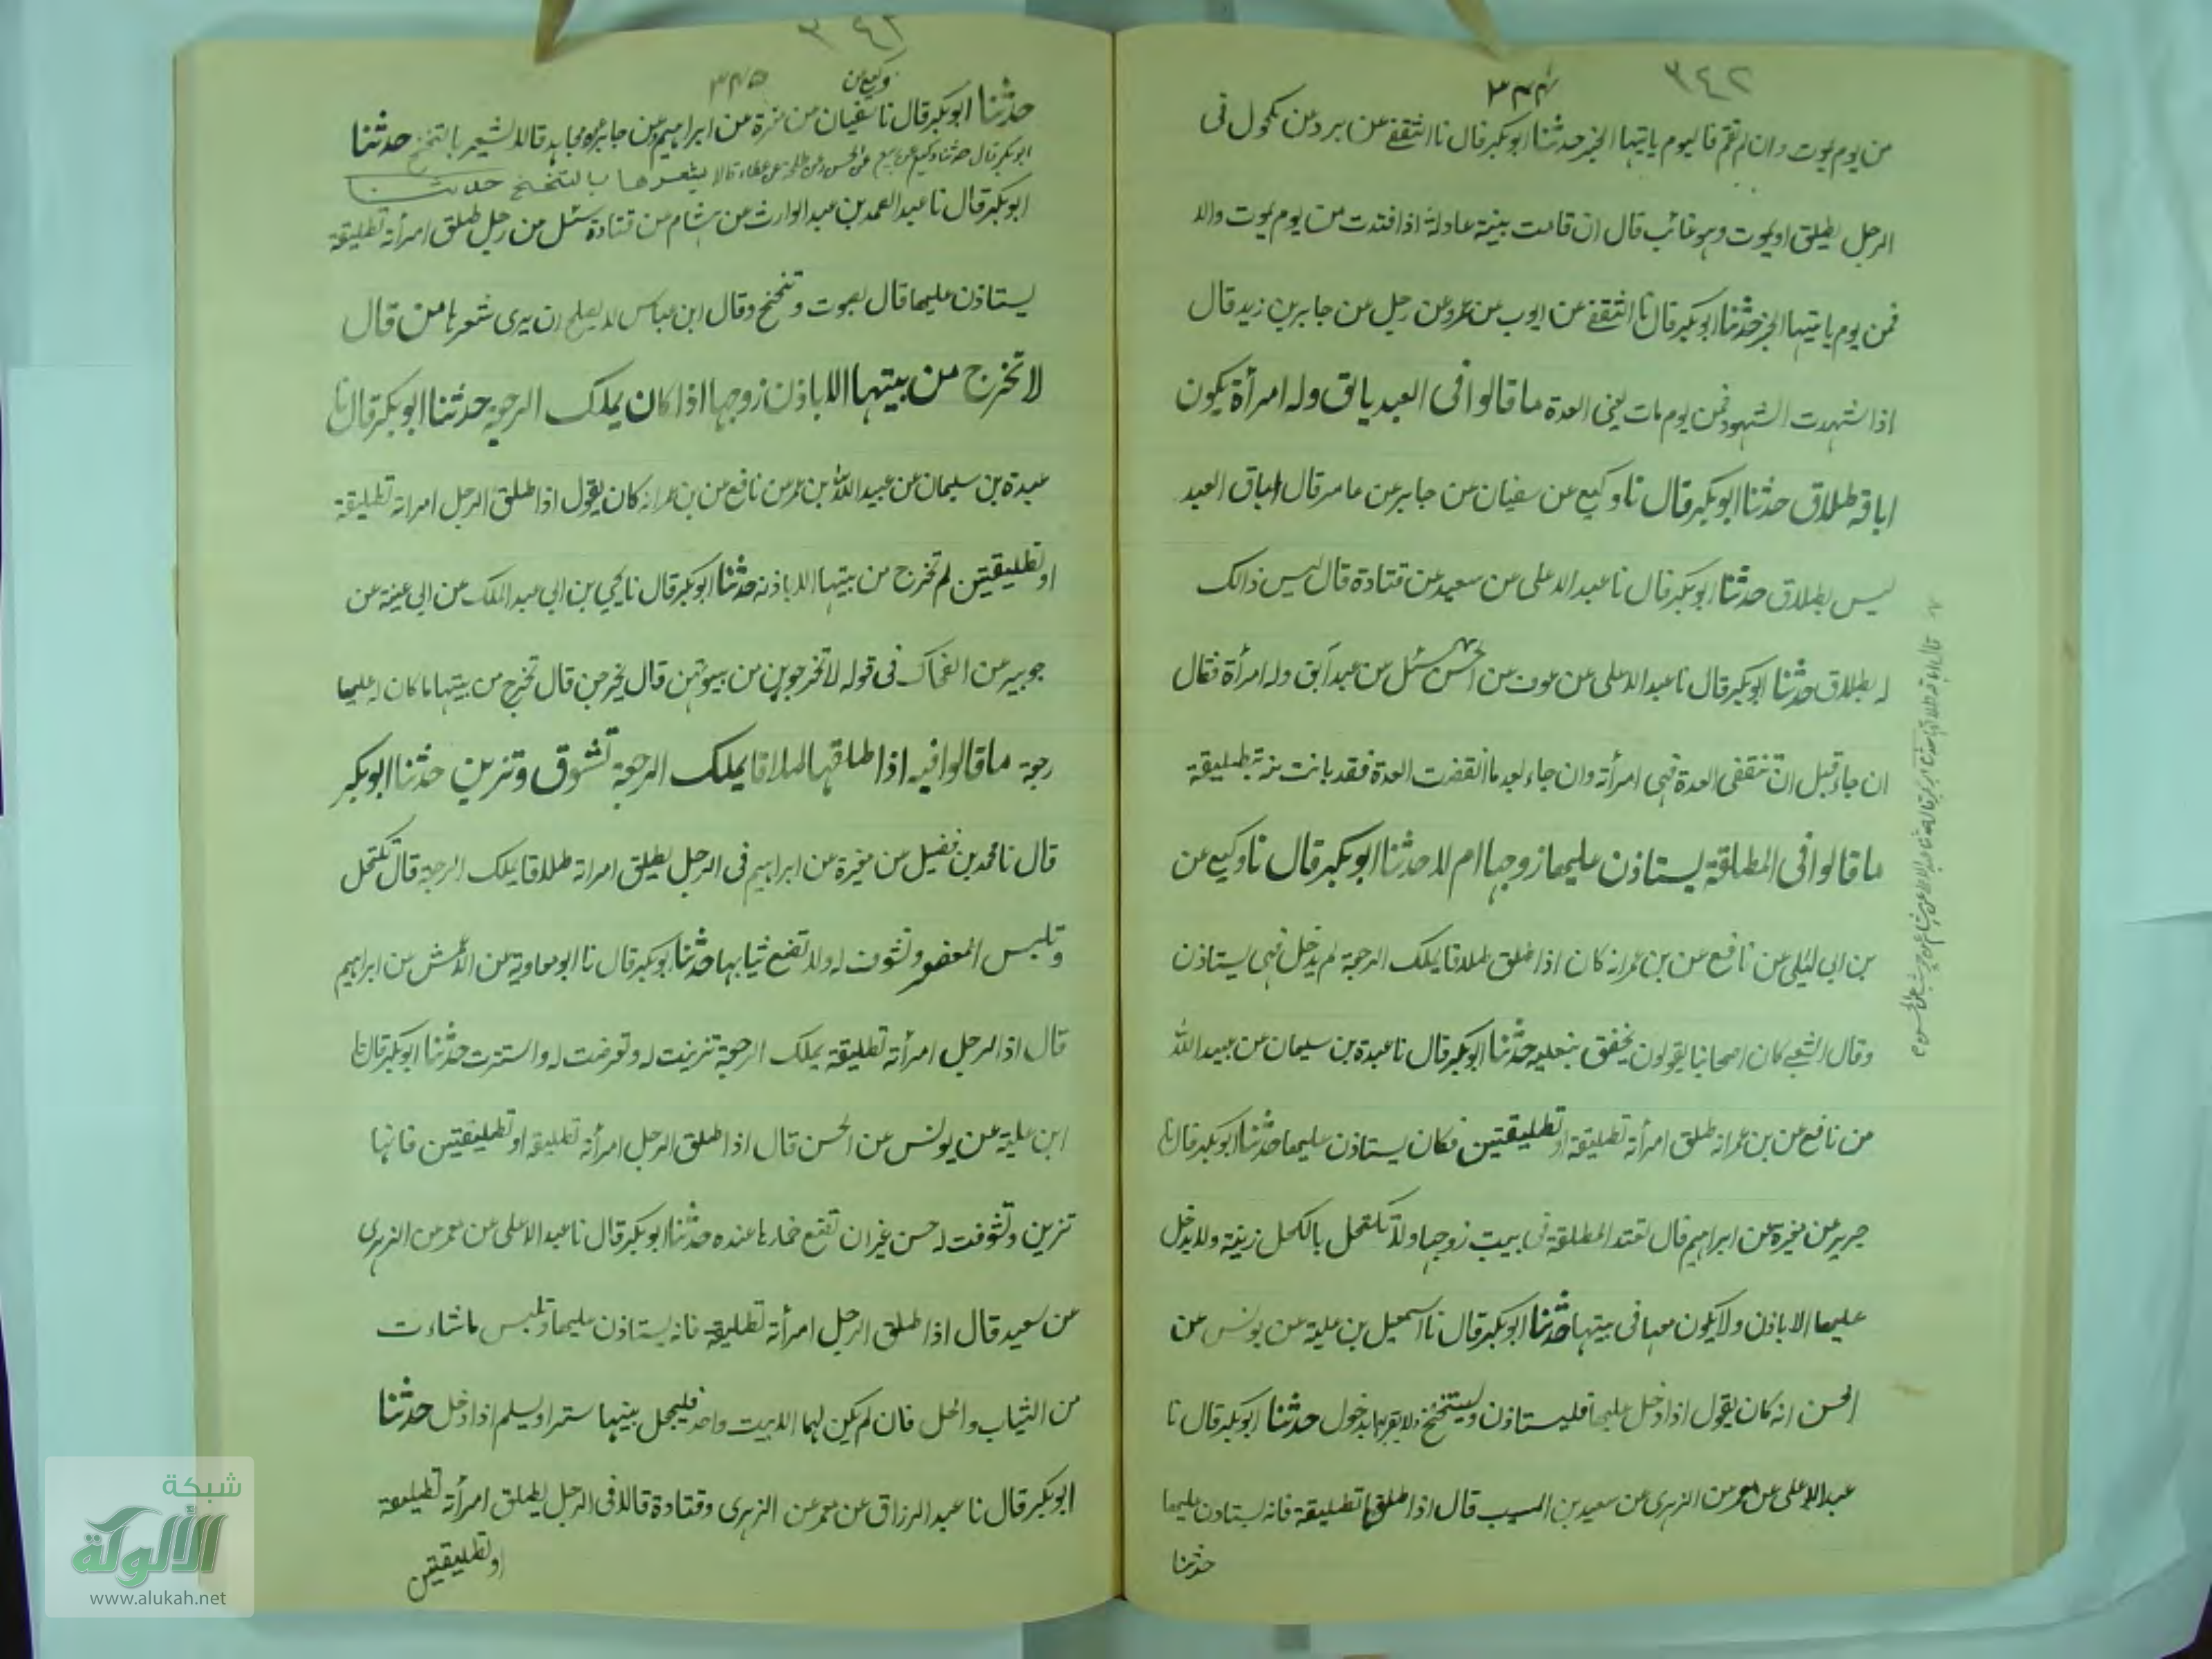 ٣٤٢
٣٤٤
من يوم يموت وان لم تقم فاليوم ياتيها الخبر حدثنا ابوبكر قال نا الثقفى عن برد عن مكحول فى
الرجل يطلق او يموت وهو غائب قال ان قامت بينة عادلة اذا فتدت من يوم يموت والا
فمن يوم ياتيها الخبر حدثنا ابوبكر قال نا الثقفى عن ايوب عن عمرو عن رجل عن جابر بن زيد قال
اذا شهدت الشهود فمن يوم مات يعنى العدة ما قالوا فى العبد يابق وله امرأة يكون
اباقه طلاق حدثنا ابوبكر قال نا وكيع عن سفيان عن جابر عن عامر قال اباق العبد
ليس بطلاق حدثنا ابوبكر قال نا عبد الاعلى عن سعيد عن قتادة قال ليس ذالك
له بطلاق حدثنا ابوبكر قال نا عبد الاعلى عن عوف عن الحسن سئل عن عبد آبق وله امرأة فقال
ان جاء قبل ان تنقضى العدة فهى امرأته وان جاء بعد ما انقضت العدة فقد بانت منه بتطليقة
ما قالوا فى المطلقة يستاذن عليها زوجها ام لا حدثنا ابوبكر قال نا وكيع عن
بن ابى ليلى عن نافع عن بن عمر انه كان اذا طلق طلاقا يملك الرجعة لم يدخل فهى يستاذن
وقال الشعبى كان اصحابنا يقولون يخفق بنعليه حدثنا ابوبكر قال نا عبدة بن سليمان عن عبيد الله
عن نافع عن بن عمر انه طلق امرأته تطليقة او تطليقتين فكان يستاذن عليها حدثنا ابوبكر قال نا
جرير عن مغيرة عن ابراهيم قال تعتد المطلقة فى بيت زوجها ولا تكتحل بالكحل زينة ولا يدخل
عليها الا باذن ولا يكون معها فى بيتها حدثنا ابوبكر قال نا اسمعيل بن علية عن يونس عن
الحسن انه كان يقول اذا دخل عليها فليستاذن وليتنحنح ولا يغرها بدخول حدثنا ابوبكر قال نا
عبد الاعلى عن معمر عن الزهرى عن سعيد بن المسيب قال اذا طلقها تطليقة فانه يستاذن عليها
حدثنا
٣٤٥
وكيع عن
حدثنا ابوبكر قال نا سفيان عن مغيرة عن ابراهيم وعن جابر عن مجاهد قالا يشعر بالتنحنح حدثنا
ابوبكر قال حدثنا وكيع عن ربيع عن الحسن وعن طلحة عن عطاء قالا يشعرها بالتنحنح حدثنا
ابوبكر قال نا عبد الصمد بن عبد الوارث عن هشام عن قتادة سئل عن رجل طلق امرأته تطليقة
يستاذن عليها قال بصوت وتنحنح وقال ابن عباس لا يصلح ان يرى شعرها من قال
لا تخرج من بيتها الا باذن زوجها اذا كان يملك الرجعة حدثنا ابوبكر قال نا
عبدة بن سليمان عن عبيد الله بن عمر عن نافع عن بن عمر انه كان يقول اذا طلق الرجل امراته تطليقة
او تطليقتين لم تخرج من بيتها الا باذنه حدثنا ابوبكر قال نا يحيى بن ابى عبد الملك عن ابى عينة عن
جويبر عن الضحاك فى قوله لا تخرجوهن من بيوتهن قال يخرجن قال تخرج من بيتها ما كان له عليها
رجعة ما قالوا فيه اذا طلقها طلاقا يملك الرجعة تشوق وتزين حدثنا ابوبكر
قال نا محمد بن فضيل عن مغيرة عن ابراهيم فى الرجل يطلق امراته طلاقا يملك الرجعة قال تكتحل
وتلبس المعصفر وتشوف له ولا تضع ثيابها حدثنا ابوبكر قال نا ابو معاوية عن الاعمش عن ابراهيم
قال اذا الرجل امرأته تطليقة يملك الرجعة تزينت له وتعرضت له واستترت حدثنا ابوبكر قال نا
ابن علية عن يونس عن الحسن قال اذا طلق الرجل امرأته تطليقة او تطليقتين فانها
تزين وتشوفت له حسن غير ان تضع خمارها عنده حدثنا ابوبكر قال نا عبد الاعلى عن معمر عن الزهرى
عن سعيد قال اذا طلق الرجل امرأته تطليقة فانه يستاذن عليها وتلبس ما شاءت
من الثياب والحلى فان لم يكن لهما الا بيت واحد فليجعل بينهما سترا ويسلم اذا دخل حدثنا
ابوبكر قال نا عبد الرزاق عن معمر عن الزهرى وقتادة قالا فى الرجل يطلق امرأته تطليقة
او تطليقتين
شبكة
الألوكة
www.alukah.net